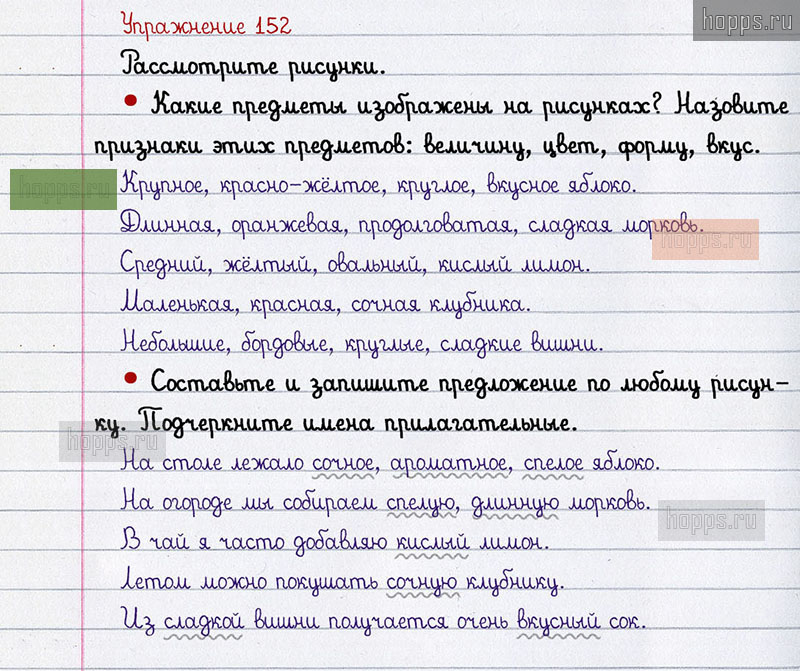 hopps.ru
Упражнение 152
Рассмотрите рисунки.
• Какие предметы изображены на рисунках? Назовите
признаки этих предметов: величину, цвет, форму, вкус.
hopps.ru
Крупное, красно-жёлтое, круглое, вкусное яблоко.
Длинная, оранжевая, продолговатая, сладкая морковь.
hopps.ru
Средний, жёлтый, овальный, кислый лимон.
Маленькая, красная, сочная клубника.
Небольшие, бордовые, круглые, сладкие вишни.
• Составьте и запишите предложение по любому рисун-
ку. Подчеркните имена прилагательные.
hopps.ru
На столе лежало сочное, ароматное, спелое яблоко.
На огороде мы собираем спелую, длинную морковь.
hopps.ru
В чай я часто добавляю кислый лимон.
Летом можно покушать сочную клубнику.
Из сладкой вишни получается очень вкусный сок.